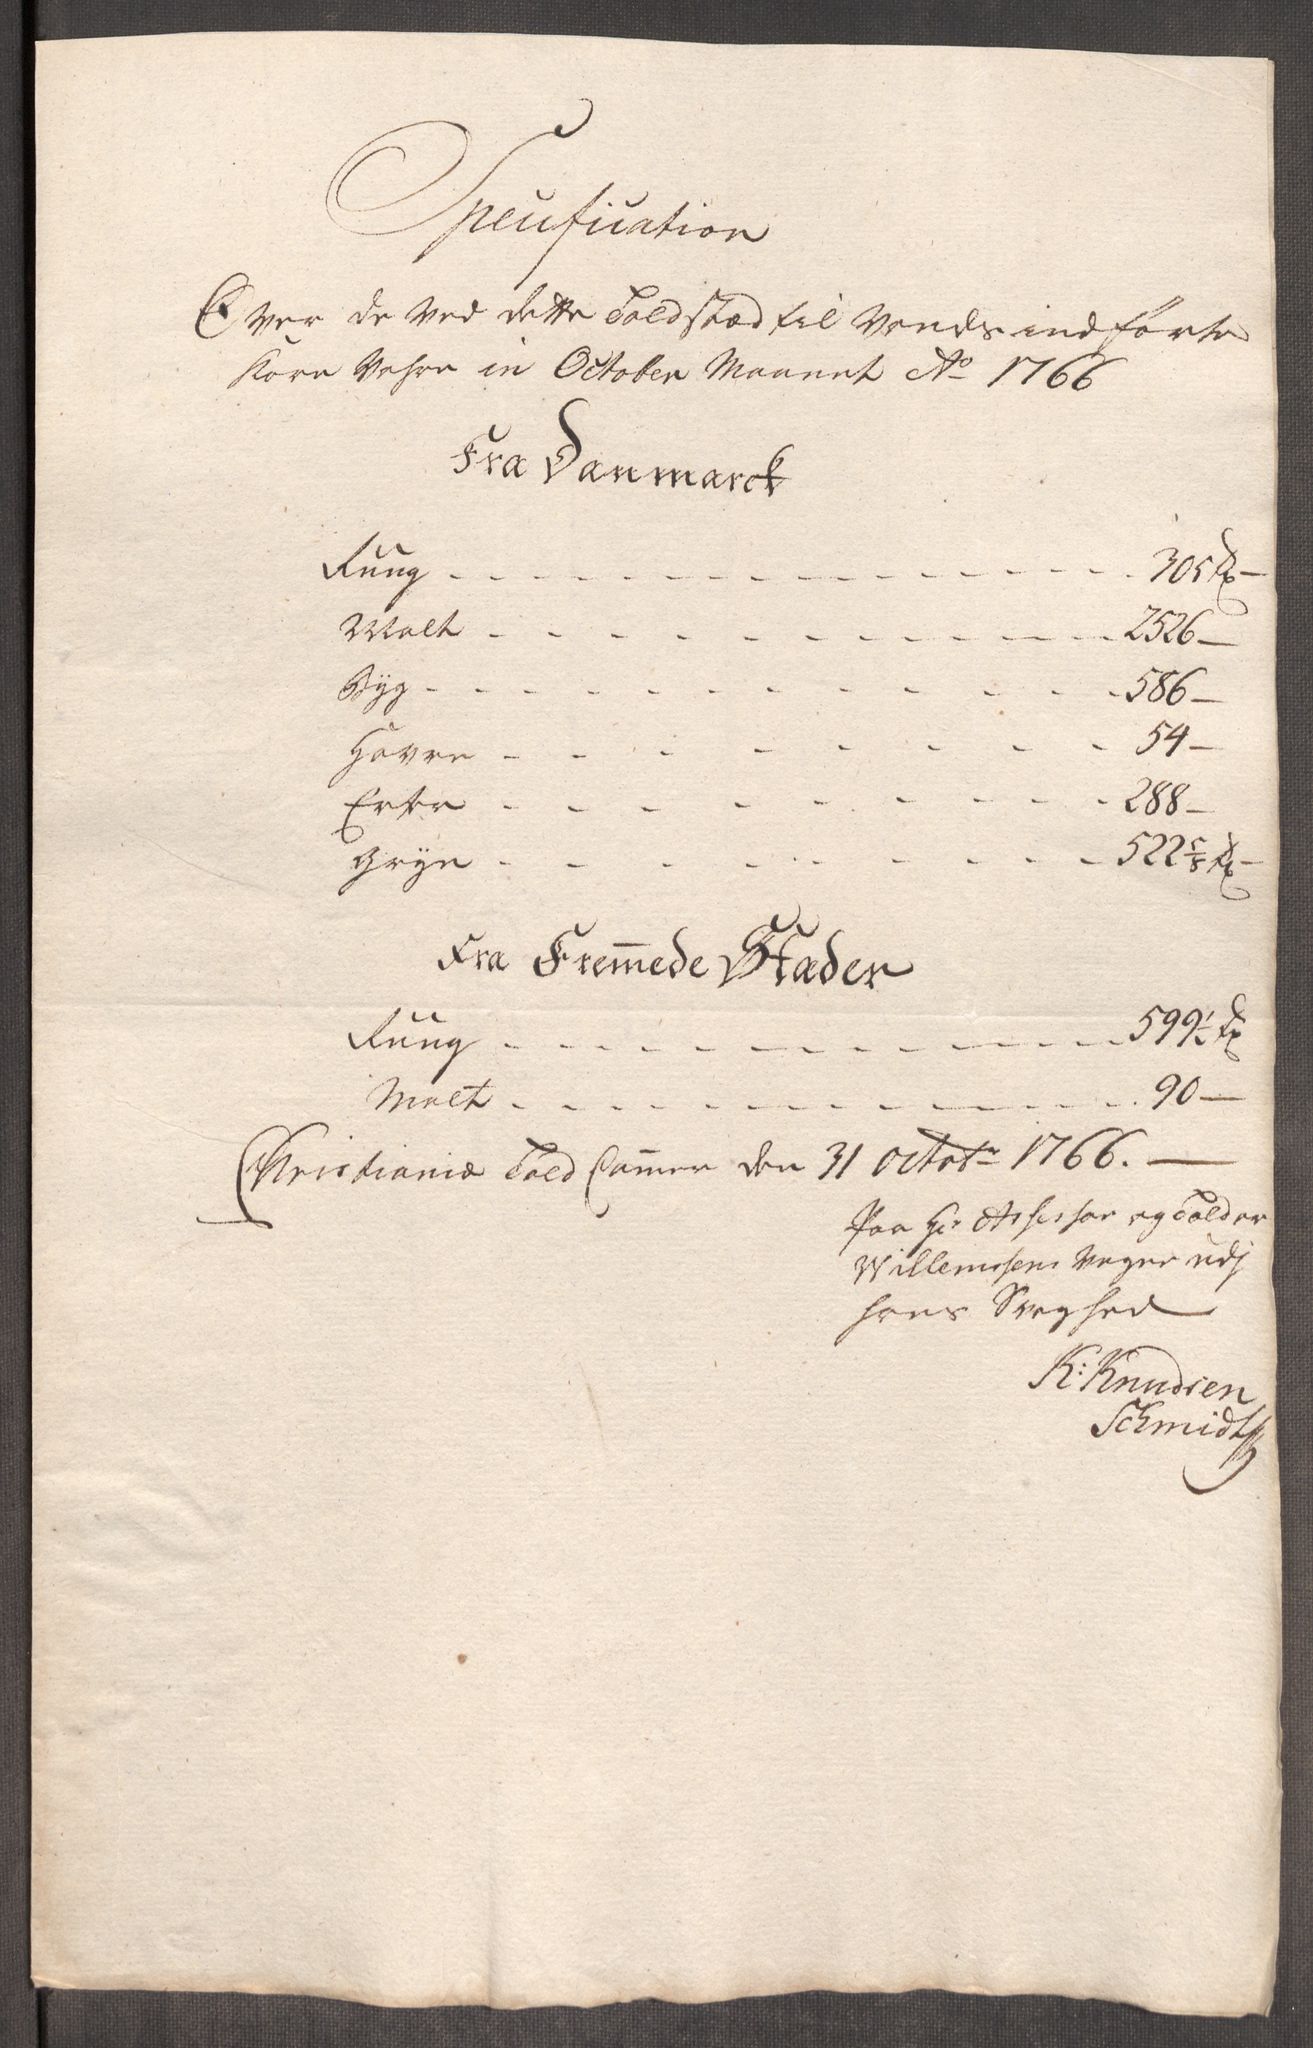 Specification
Over de ved dette Toldstæd til Vands indførte
Korn Vahre in October Maanet Ao 1766
Fra Danmarck
Rúúg - - - 305 Tr
Malt - - - 2526 -
Byg - - - 586 -
Havre - - - 54 -
Erter - - - 288 -
Gryn - - - 522 5/8 Tr
Fra Frem̅ede Stæder
Rúúg - - - 599 1/2 Tr
Malt - - - 90 -
Christiania Told Cam̅er den 31 Octobr 1766.
Paa Hr Assessor og Tolder
Willemsens Vegne udj
hans Svaghed
K: Knudsen
Schmidt